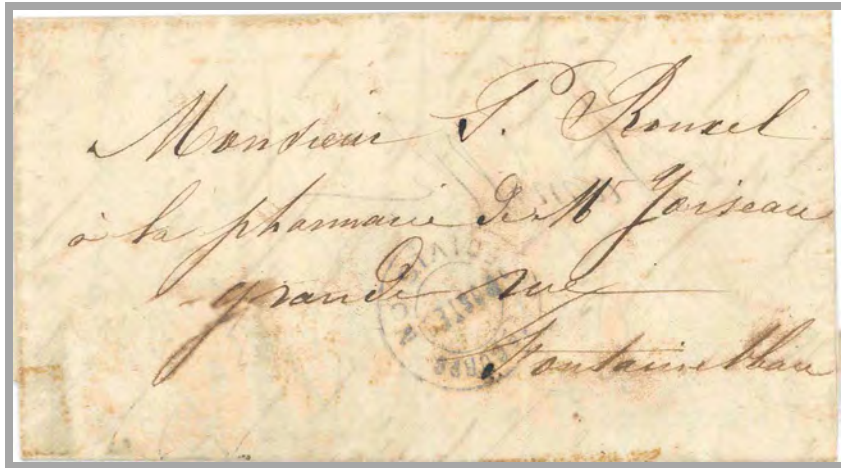 Monsieur P. Rouxel
à la pharmacie de Mr Joiseau
grande rue
Fontainebleau
POSTES